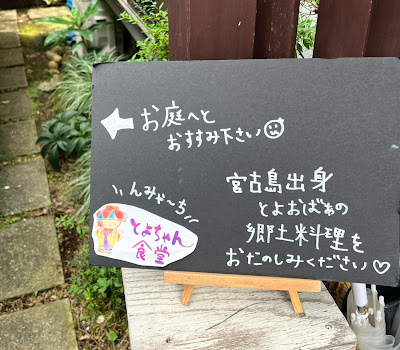 お庭へと
おすすみ下さい☺
宮古島出身
とよおばぁの
郷土料理を
おたのしみください♡
んみゃ〜ち
とよちゃん
食堂